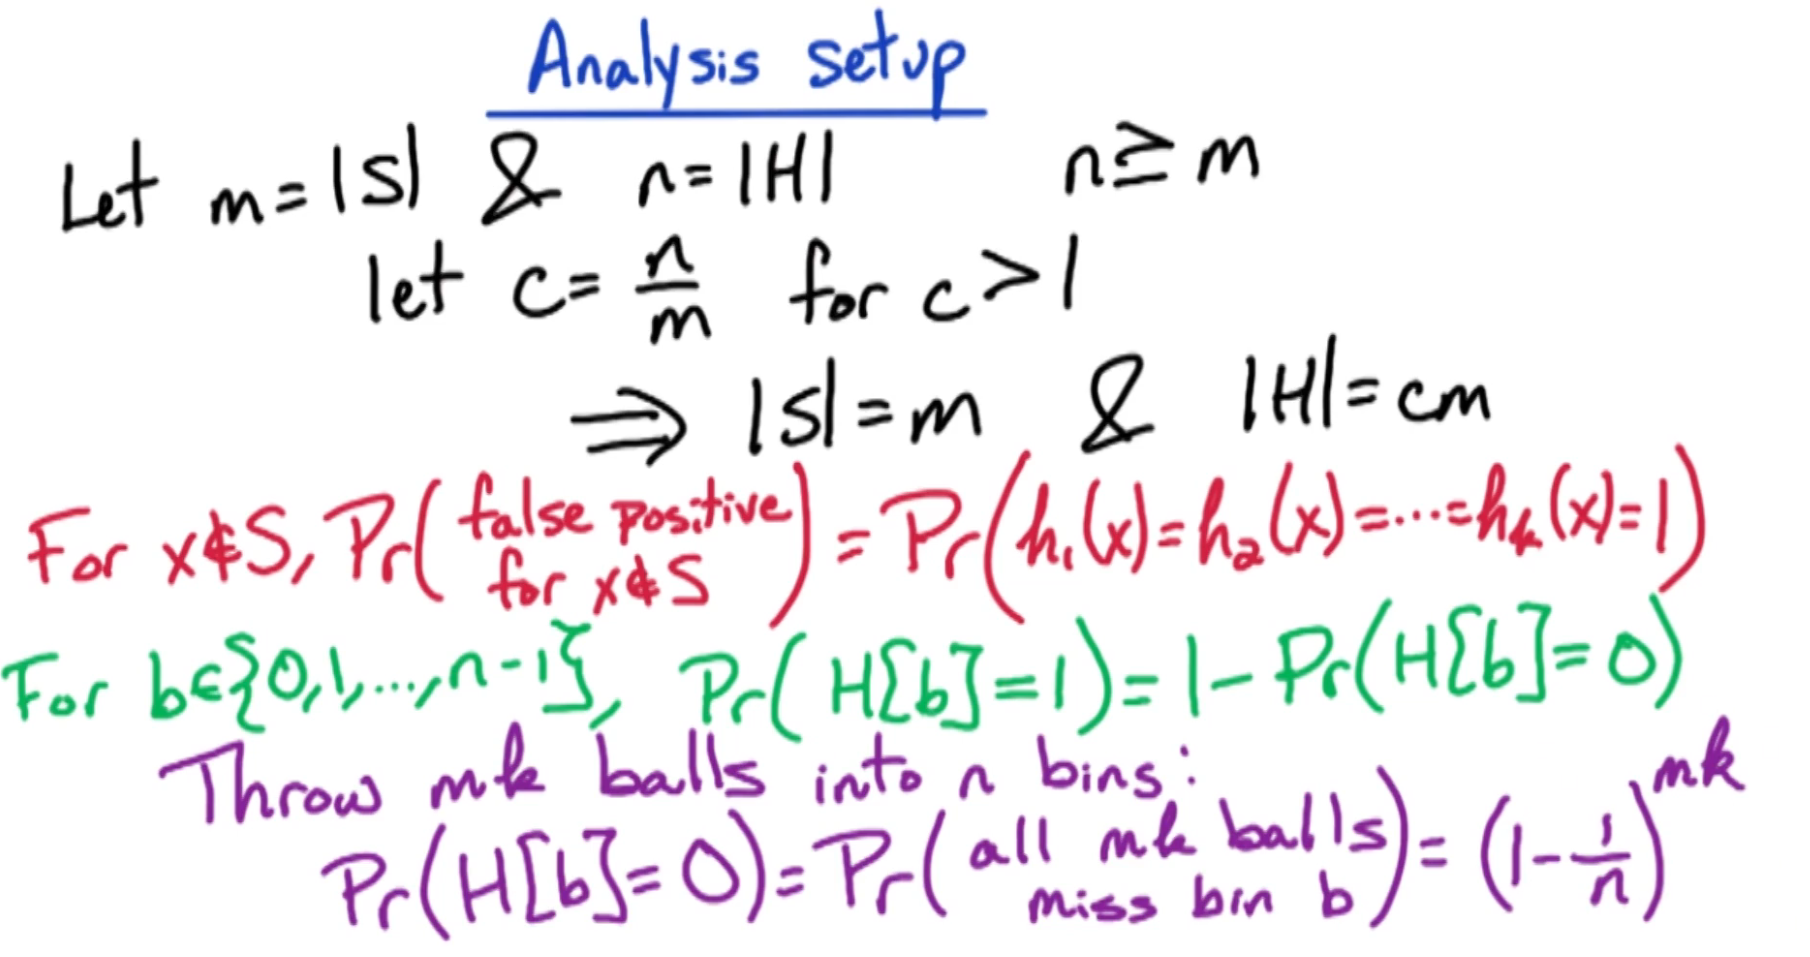 Analysis setup
Let m = |S| & n = |H| n ≥ m
let c = n/m for c > 1
⇒ |S| = m & |H| = cm
For x∉S, Pr(false positive for x∉S) = Pr(h₁(x) = h₂(x) = ... = hₖ(x) = 1)
For b∈{0,1,...,n-1}, Pr(H[b] = 1) = 1 - Pr(H[b] = 0)
Throw mk balls into n bins:
Pr(H[b] = 0) = Pr(all mk balls miss bin b) = (1 - 1/n)^mk